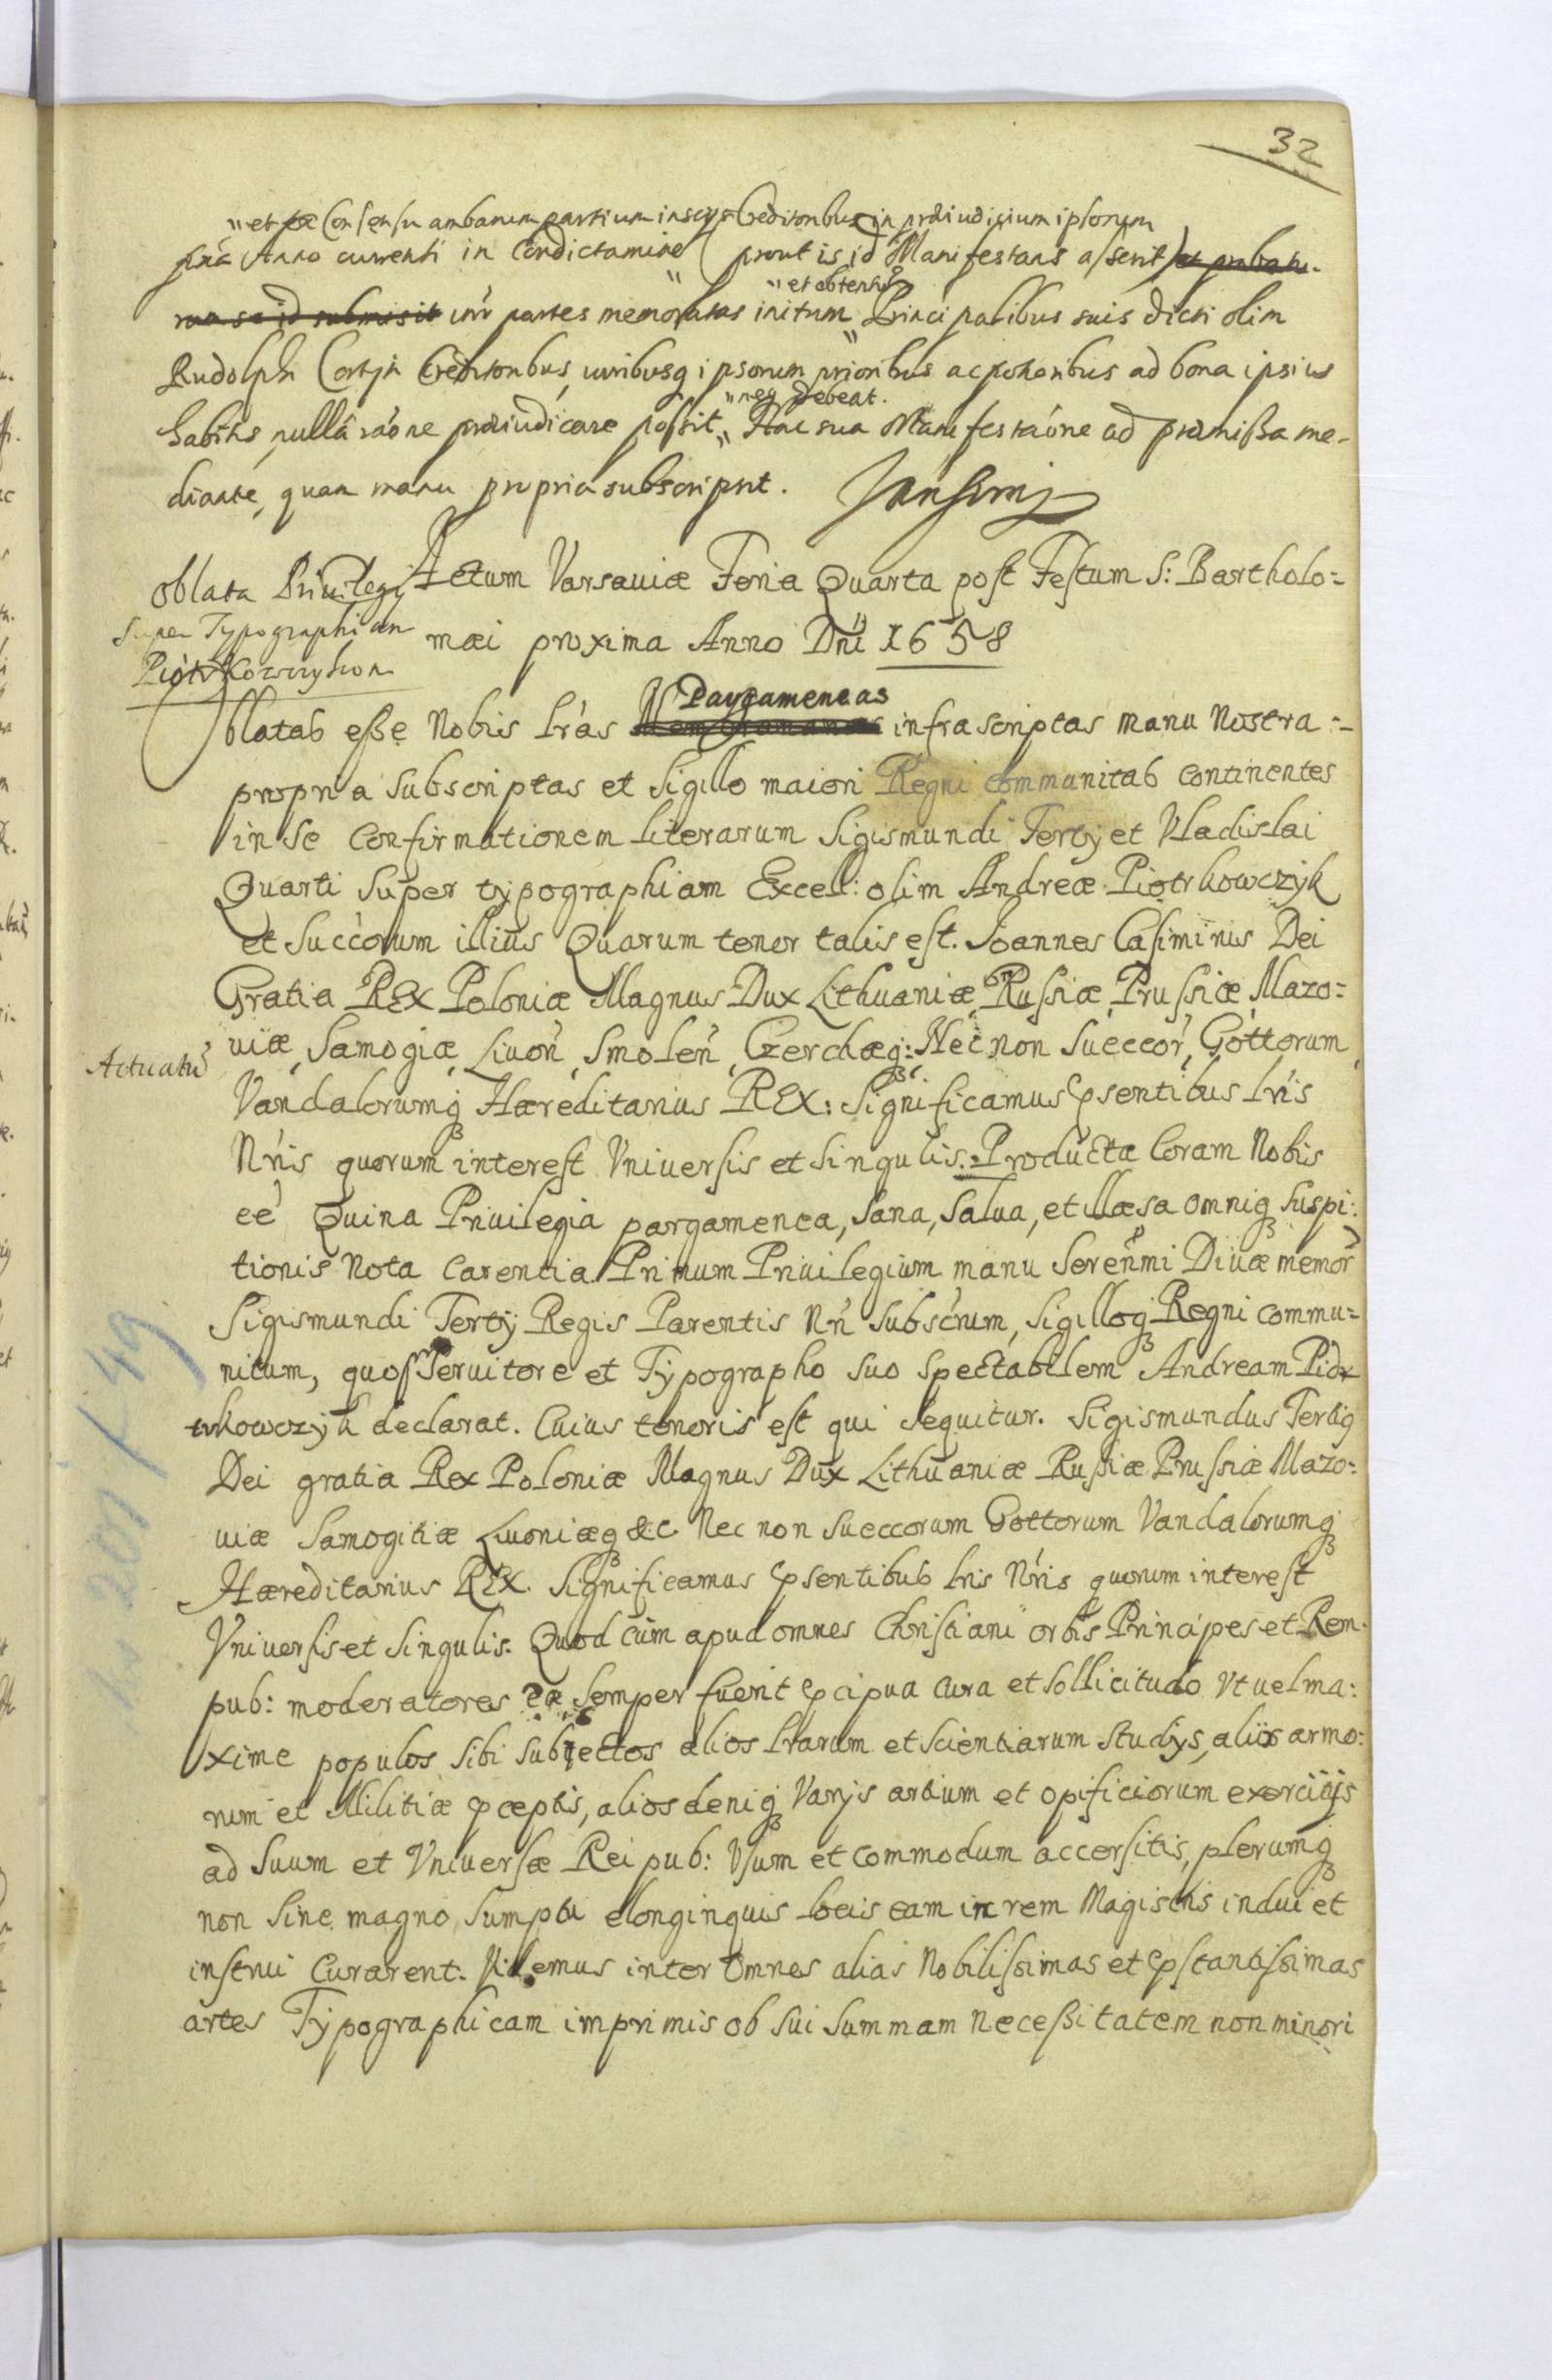 32
et Consensu ambarum partium inscijs Creditoribus in præiudicium ipsorum
Anno currenti in Condictamine (prout is id Manifestans asserit) et probatu-
rum se id submisit inr partes memoratas initum Principalibus suis dicti olim
et obtentũ
Rudolphi Creditoribus, iuribusq ipsorum prioribus ac potioribus ad bona ipsius
neq debeat.
habitis, nullâ raóne præiudicare possit, Hac sua Manifestaóne ad præmißa me-
diante, quam manu propria subscripsit.
Oblata Priuilegij
Super Typographiam
Piotrkowczykon
Actum Varsauiæ Feria Quarta post Festum S: Bartholo=
mæi proxima Anno Dni 1658
Pargameneas
Oblatas eße Nobis Lrás infrascriptas manu Nostra
propria Subscriptas et Sigillo maiori Regni communitas continentes
in Se Confirmationem literarum Sigismundi Tertij et Vladislai
Quarti Super typographiam Excell: olim Andreæ Piotrkowczyk
et Succórum illius Quarum tenor talis est. Joannes Casimirus Dei
Gratia REX Poloniæ Magnus Dux Lithuaniæ, Russiæ, Prussiæ, Mazo=
Actuatũ
uiæ, Samogiæ, Liuoñ, Smoleñ, Czerchæq: Nec non Sueccor, Gottorum,
Vandalorumq Hæreditarius REX: Significamus psentibus Lris
Nris quorum interest Vniuersis et Singulis. Producta Coram Nobis
eé Quina Priuilegia pargamenea, Sana, Salua, et illæsa omniq Suspi:
tionis Nota Carentia. Primum Priuilegium manu Sereñmi Diuæ memor
Sigismundi Tertij Regis Parentis Nri Subscrum, Sigilloq Regni commu=
nitum, quo Seruitore et Typographo Suo Spectabilem Andream Piotr
trkowczyk declarat. Cuius tenoris est qui sequitur. Sigismundus Tertiq
Dei gratia Rex Poloniæ Magnus Dux Lithuaniæ Russiæ Prussiæ Mazo=
uiæ Samogitiæ Liuoniæq &c Nec non Sueccorum Gottorum Vandalorumq
Hæreditarius REX. Significamus psentibus Lris Nris quorum interest
Vniuersis et Singulis. Quod cùm apud omnes Christiani orbis Principes et Rem
pub: moderatores ea Semper fuerit pcipua cura et sollicitudo Vt vel ma:
xime populos Sibi Subiectos alios Lrarum et Scientiarum Studijs, alios armo:
rum et Militiæ pceptis, alios deniq Varijs artium et opificiorum exercitijs
ad Suum et Vniuersæ Rei pub: Vsum et commodum accersitis, plerumq
non Sine magno Sumptu e longinquis locis eam in rem Magistris indui et
instrui Curarent. Videmus inter Omnes alias Nobilissimas et pstantissimas
artes Typographicam imprimis ob Sui Summam Neceßitatem non minori